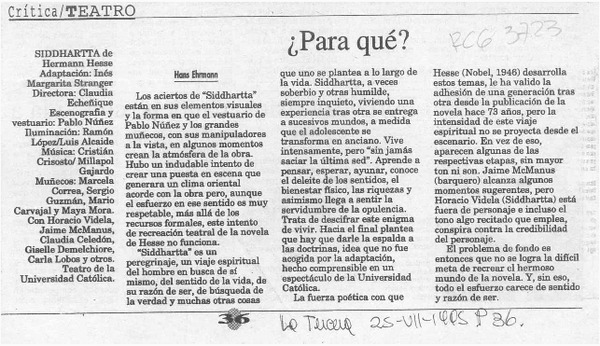 Crítica/TEATRO
¿Para qué?
RCG 3723
SIDDHARTTA de
Hermann Hesse
Adaptación: Inés
Margarita Stranger
Directora: Claudia
Echeñique
Escenografía y
vestuario: Pablo Núñez
Iluminación: Ramón
López/Luis Alcaide
Música: Cristián
Crisosto/ Millapol
Gajardo
Muñecos: Marcela
Correa, Sergio
Guzmán, Mario
Carvajal y Maya Mora.
Con Horacio Videla,
Jaime McManus,
Claudia Celedón,
Giselle Demelchiore,
Carla Lobos y otros.
Teatro de la
Universidad Católica.
Hans Ehrmann
Los aciertos de "Siddhartta"
están en sus elementos visuales
y la forma en que el vestuario de
Pablo Núñez y los grandes
muñecos, con sus manipuladores
a la vista, en algunos momentos
crean la atmósfera de la obra.
Hubo un indudable intento de
crear una puesta en escena que
generara un clima oriental
acorde con la obra pero, aunque
el esfuerzo en ese sentido es muy
respetable, más allá de los
recursos formales, este intento
de recreación teatral de la novela
de Hesse no funciona.
"Siddhartta" es un
peregrinaje, un viaje espiritual
del hombre en busca de sí
mismo, del sentido de la vida, de
su razón de ser, de búsqueda de
la verdad y muchas otras cosas
que uno se plantea a lo largo de
la vida. Siddhartta, a veces
soberbio y otras humilde,
siempre inquieto, viviendo una
experiencia tras otra se entrega
a sucesivos mundos, a medida
que el adolescente se
transforma en anciano. Vive
intensamente, pero "sin jamás
saciar la última sed". Aprende a
pensar, esperar, ayunar, conoce
el deleite de los sentidos, el
bienestar físico, las riquezas y
asimismo llega a sentir la
servidumbre de la opulencia.
Trata de descifrar este enigma
de vivir. Hacia el final plantea
que hay que darle la espalda a
las doctrinas, idea que no fue
acogida por la adaptación,
hecho comprensible en un
espectáculo de la Universidad
Católica.
La fuerza poética con que
Hesse (Nobel, 1946) desarrolla
estos temas, le ha valido la
adhesión de una generación tras
otra desde la publicación de la
novela hace 73 años, pero la
intensidad de este viaje
espiritual no se proyecta desde el
escenario. En vez de eso,
aparecen algunas de las
respectivas etapas, sin mayor
ton ni son. Jaime McManus
(barquero) alcanza algunos
momentos sugerentes, pero
Horacio Videla (Siddhartta) está
fuera de personaje e incluso el
tono algo recitado que emplea,
conspira contra la credibilidad
del personaje.
El problema de fondo es
entonces que no se logra la difícil
meta de recrear el hermoso
mundo de la novela. Y, sin eso,
todo el esfuerzo carece de sentido
y razón de ser.
36
La Tercera 25-VII-1995 P 36.